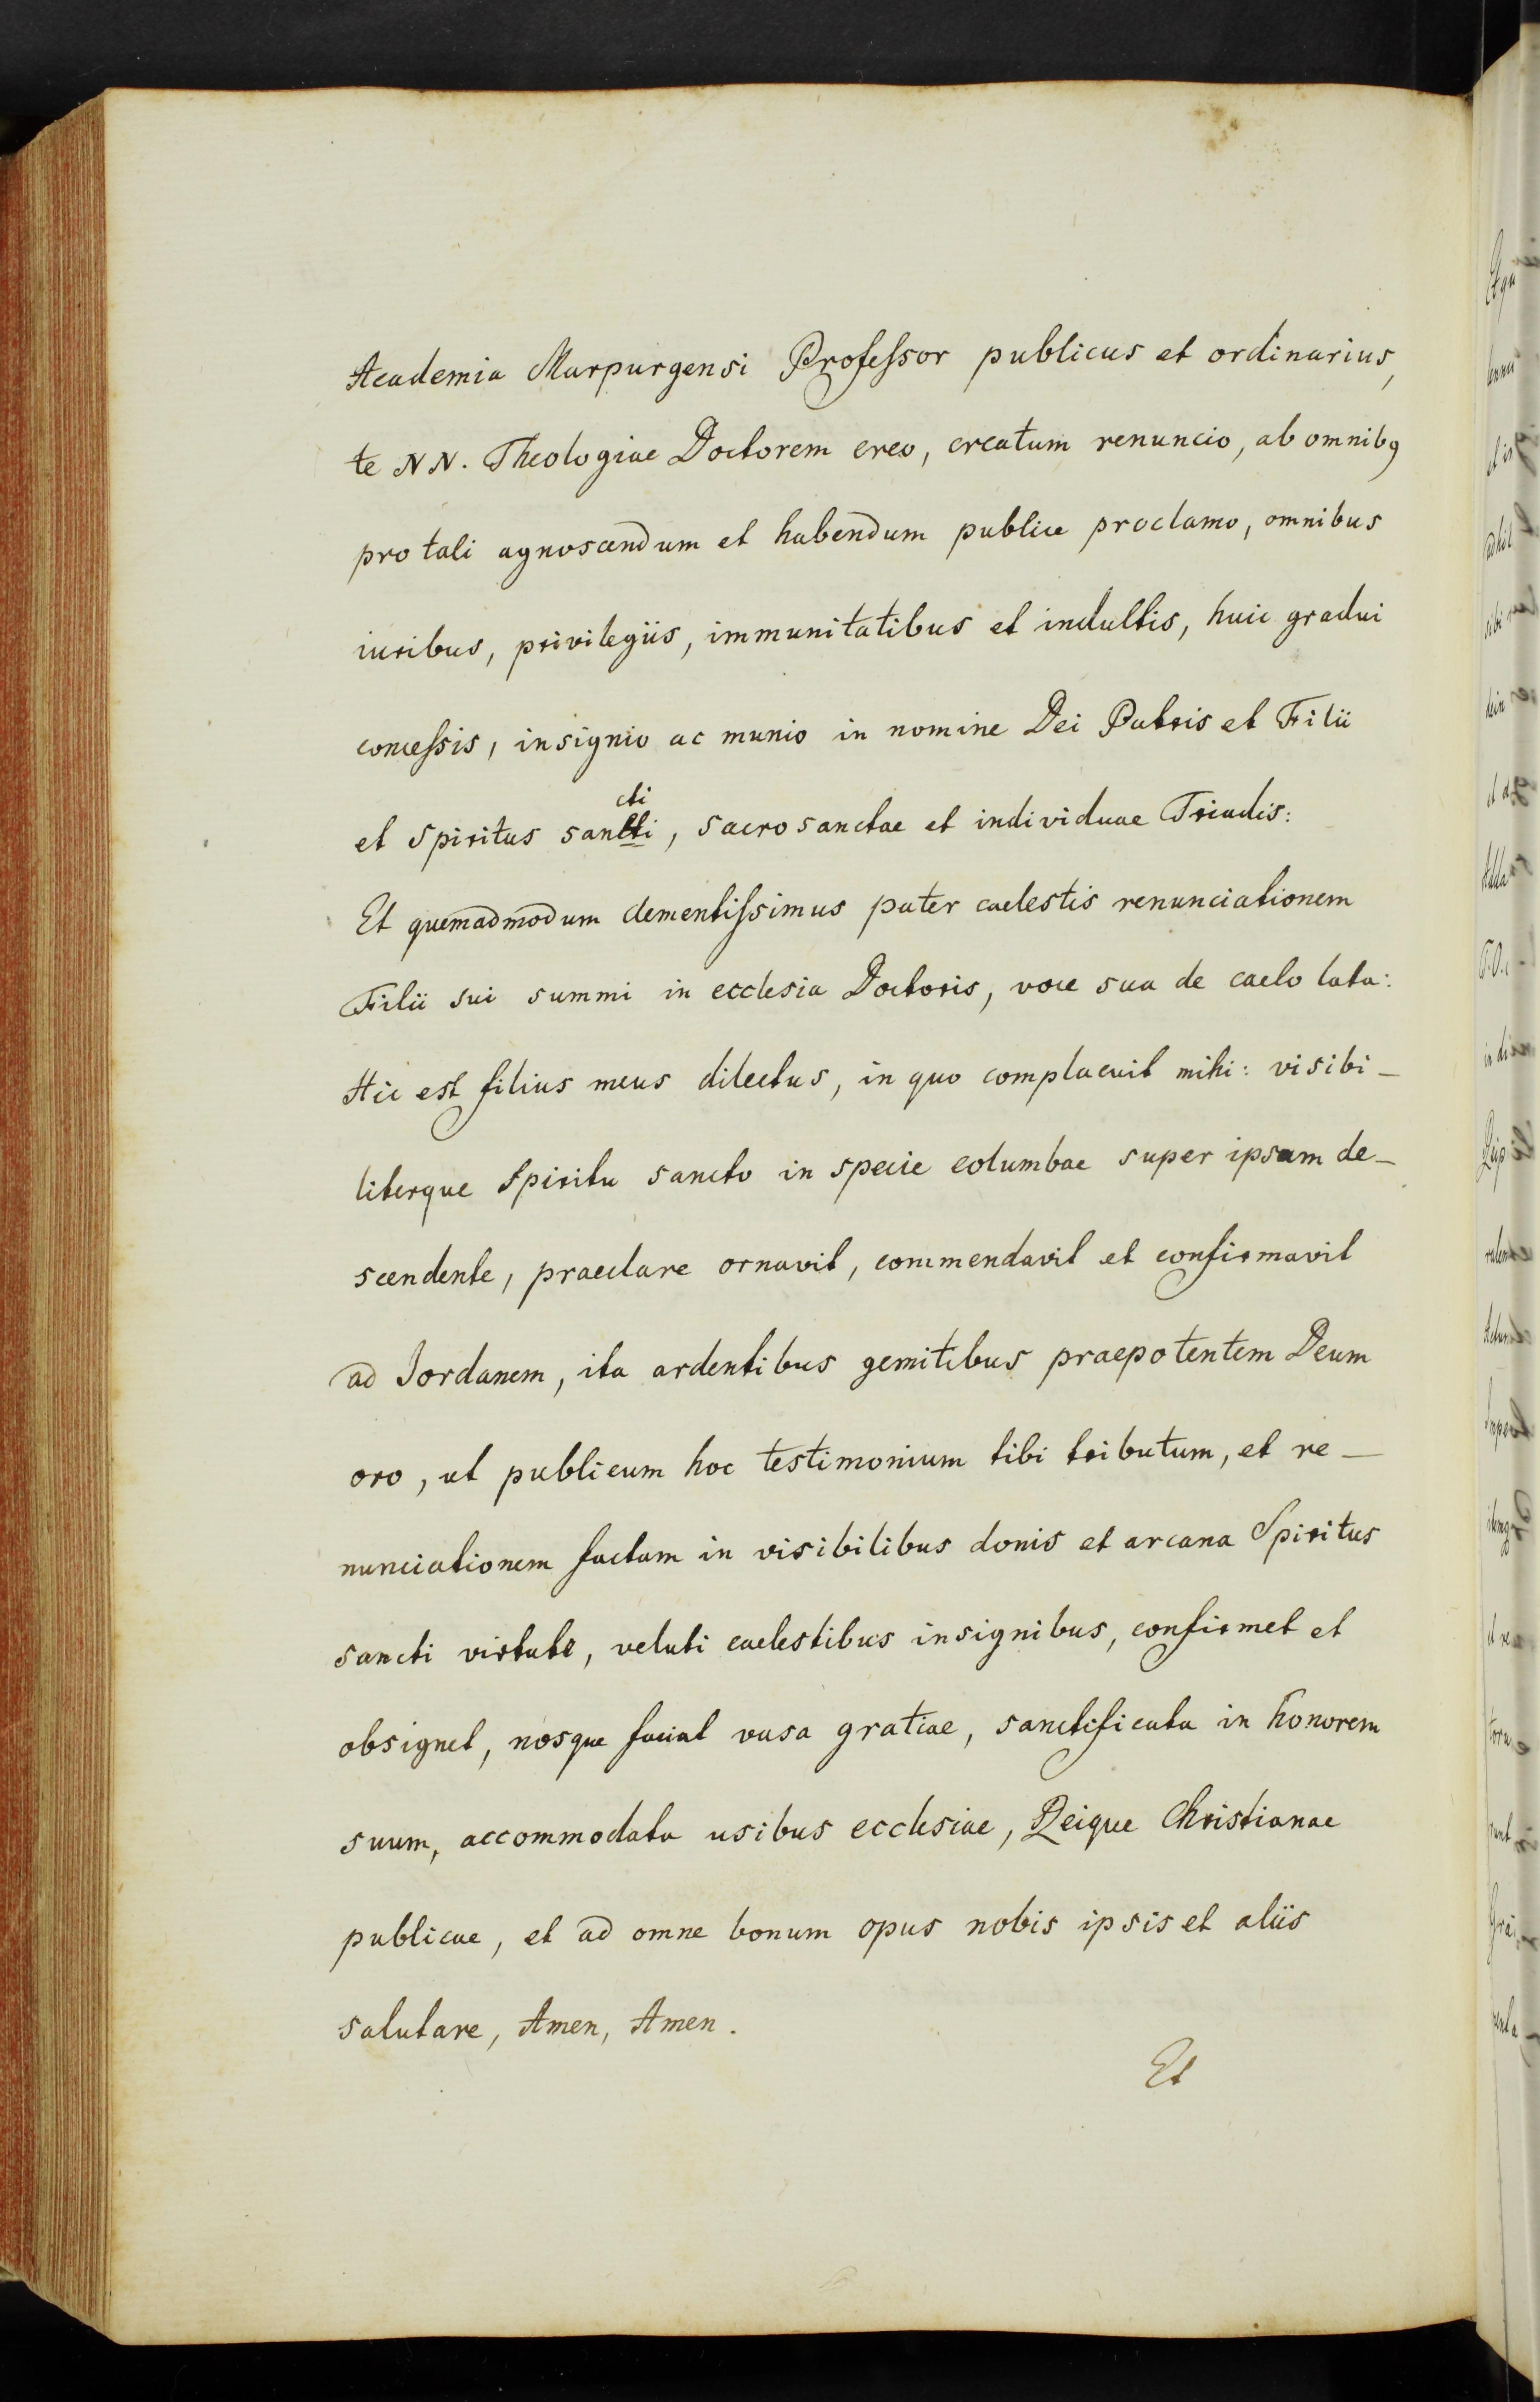 Academia Marpurgensi Profeſsor publicus et ordinarius,
te NN. Theologiae Doctorem creo, creatum renuncio, ab omnibꝯ
pro tali agnoscendum et habendum publice proclamo, omnibus
iuribus, privilegiis, immunitatibus et indultis, huic gradui
conceſsis, insignio ac munio in nomine Dei Patris et Filii
cti
et Spiritus sancti, sacrosanctae et individuae Triadis:
Et quemadmodum clementiſsimus pater caelestis renunciationem
Filii sui summi in ecclesia Doctoris, voce sua de caelo lata:
Hic est filius meus dilectus, in quo complacuit mihi: visibi-
literque Spiritu sancto in specie columbae super ipsum de-
scendente, praeclare ornavit, commendavit et confirmavit
ad Jordanem, ita ardentibus gemitibus praepotentem Deum
oro, ut publicum hoc testimonium tibi tributum, et re-
nunciationem factam in visibilibus donis et arcana Spiritus
sancti virtute, veluti caelestibus insignibus, confirmet et
obsignet, nosque faciat vasa gratiae, sanctificata in honorem
suum, accommodata usibus ecclesiae, Reique Christianae
publicae, et ad omne bonum opus nobis ipsis et aliis
salutare, Amen, Amen.
Et